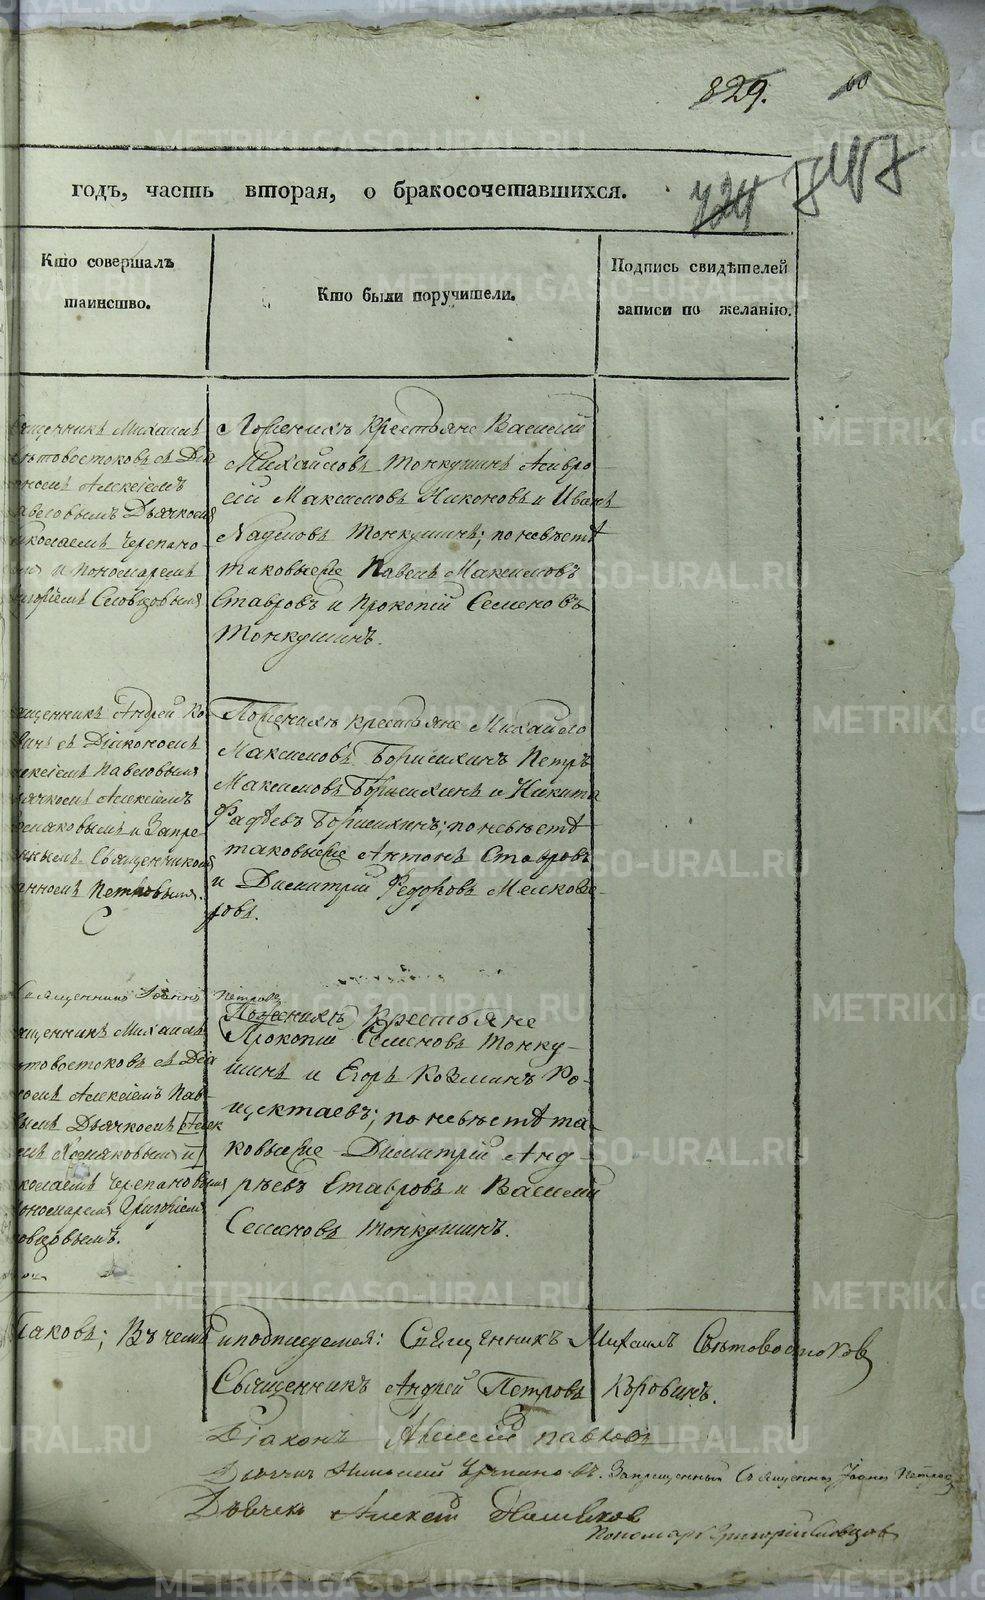 829.
60
724
747
годъ, часть вторая, о бракосочетавшихся.
Кто совершалъ
таинство.
Кто были поручители.
Подпись свидѣтелей
записи по желанію.
ященникъ Михаилъ
ѣтовостоковъ съ Діа
ономъ Алексіемъ
авловымъ Дьячкомъ
иколаемъ Черепано
вымъ и Пономаремъ
ригоріемъ Словцовымъ
По женихѣ крестьяне Василій
Михайловъ Тонкушинъ Амвро
сій Максимовъ Никоновъ и Иванъ
Наумовъ Тонкушинъ; по невѣстѣ
таковыеже Павелъ Максимовъ
Ставровъ и Прокопій Семеновъ
Тонкушинъ.
ященникъ Андрей Ко
винъ съ Діякономъ
лексіемъ Павловымъ
ьячкомъ Алексіемъ
омяковымъ и Запре
ннымъ Священникомъ
анномъ Петровымъ.
По женихѣ крестьяне Михайло
Максимовъ Борисихинъ Петръ
Максимовъ Борисихинъ и Никита
Фадѣевъ Борисихинъ; по невѣстѣ
таковыеже Антонъ Ставровъ
и Димитрій Федоровъ Мелкозе
ровъ.
Священникъ Іоаннъ Петровъ
ященникъ Михаилъ
ѣтовостоковъ съ Діа
номъ Алексіемъ Пав
вымъ Дьячкомъ Алек
емъ Хомяковымъ и
колаемъ Черепановымъ
ономаремъ Григоріемъ
овцовымъ.
По женихѣ Крестьяне
Прокопій Семеновъ Тонку-
шинъ и Егоръ Козминъ Ро-
щектаевъ; по невѣстѣ та-
ковыеже Димитрій Анд-
рѣевъ Ставровъ и Василій
Семеновъ Тонкушинъ.
таковъ; Въ чемъ и подписуемся: Священникъ Михаилъ Свѣтовостоковъ
Священникъ Андрей Петровъ Коровинъ.
Діаконъ Алексій Павловъ
Дьячекъ Николай Черепановъ. Запрещенный Священникъ Іоаннъ Петровъ
Дьячекъ Алексѣй Хомяковъ
Пономарь Григорій Словцовъ
METRIKI.GASO-URAL.RU